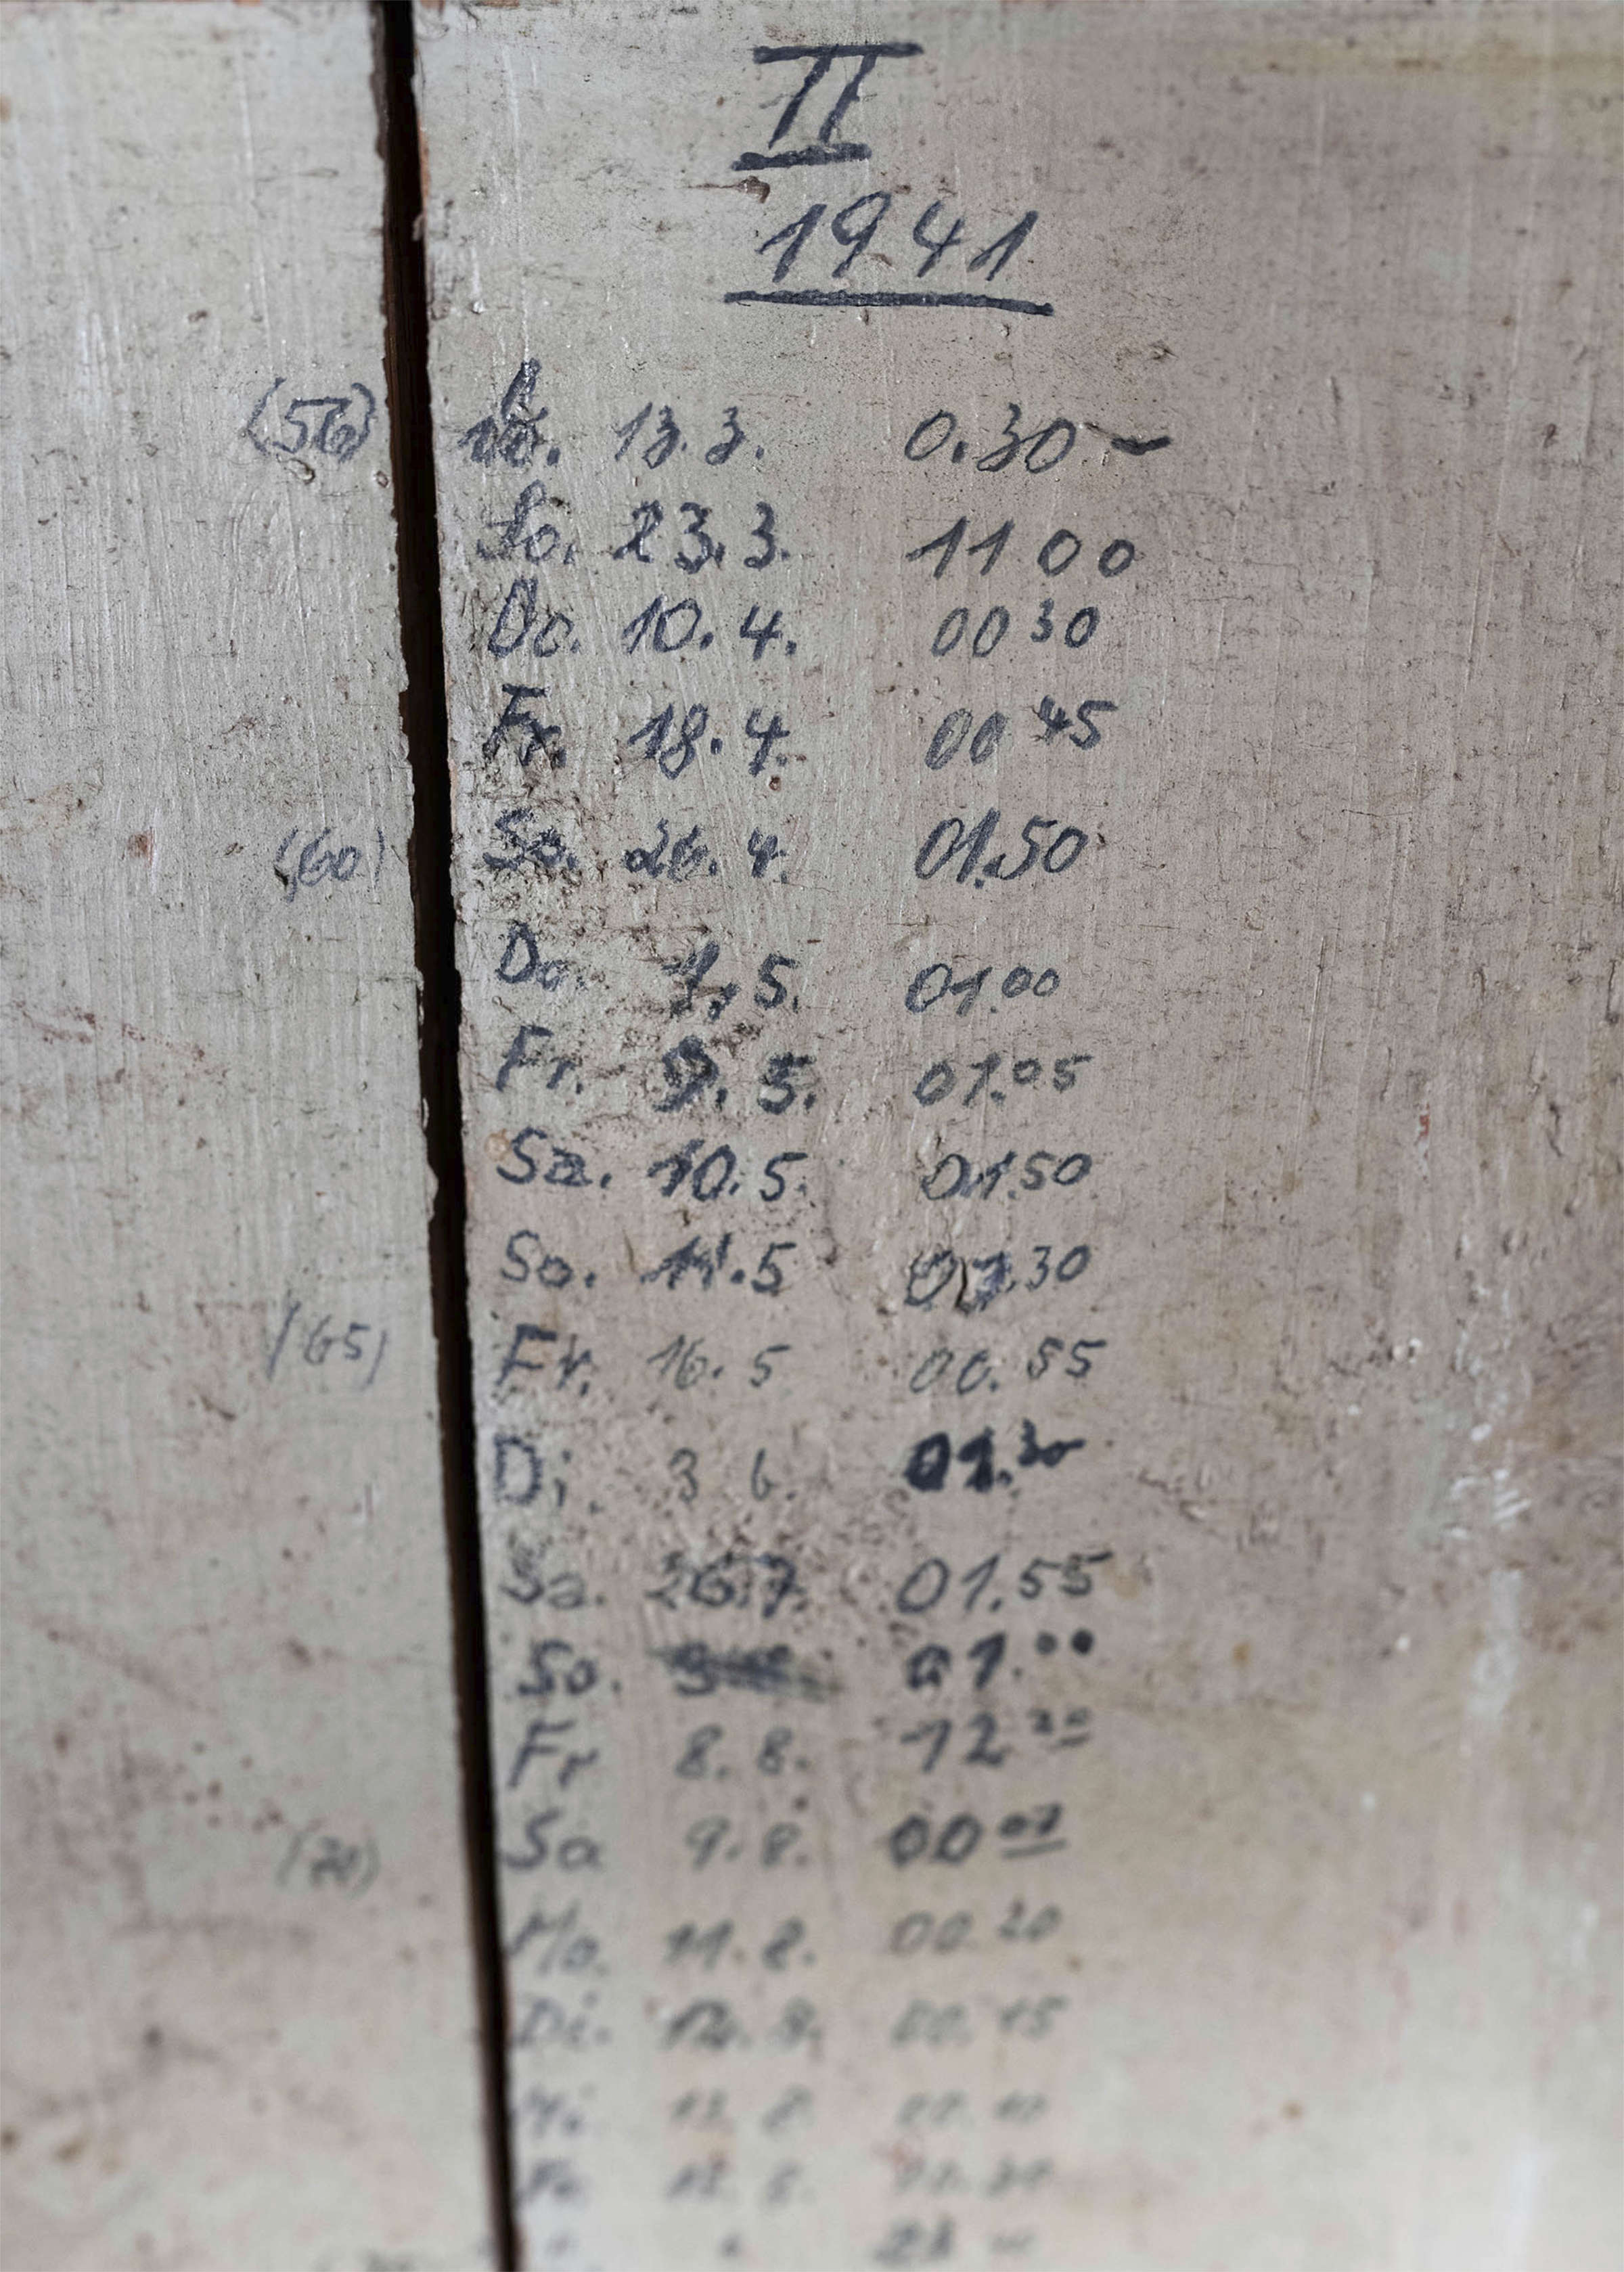 II
1941
(56) 13.3. 0.30 -
So. 23.3. 11 00
Do. 10.4. 00 30
Fr. 18.4. 00 45
(60) 26.4. 01.50
Do. 5. 01.00
Fr. 9.5. 01.05
Sa. 10.5. 01.50
So. 11.5 01.30
(65) Fr. 16.5 00.55
Di. 3 6. 01.30
Sa. 26.7. 01.55
So. 01.00
Fr 8.8. 12 20
(70) Sa 9.8. 00 07
Mo. 11.8. 00.20
Di. 12.8. 00.15